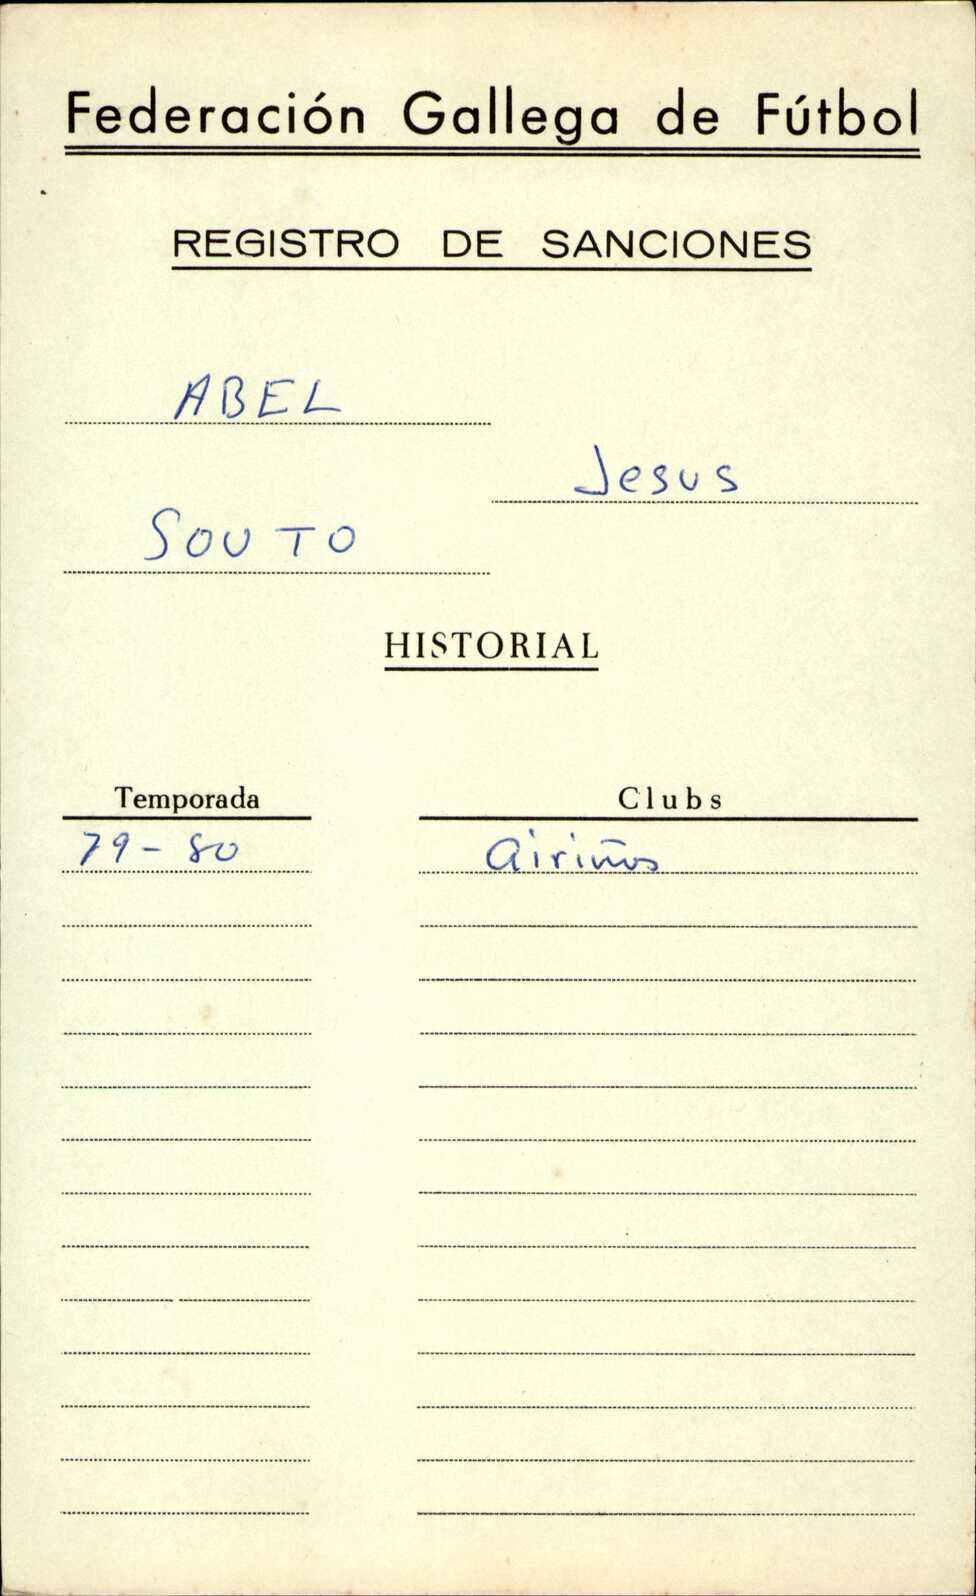 Federación Gallega de Fútbol
REGISTRO DE SANCIONES
ABEL
Jesus
SOUTO
HISTORIAL
Temporada Clubs
79-80 Airiños